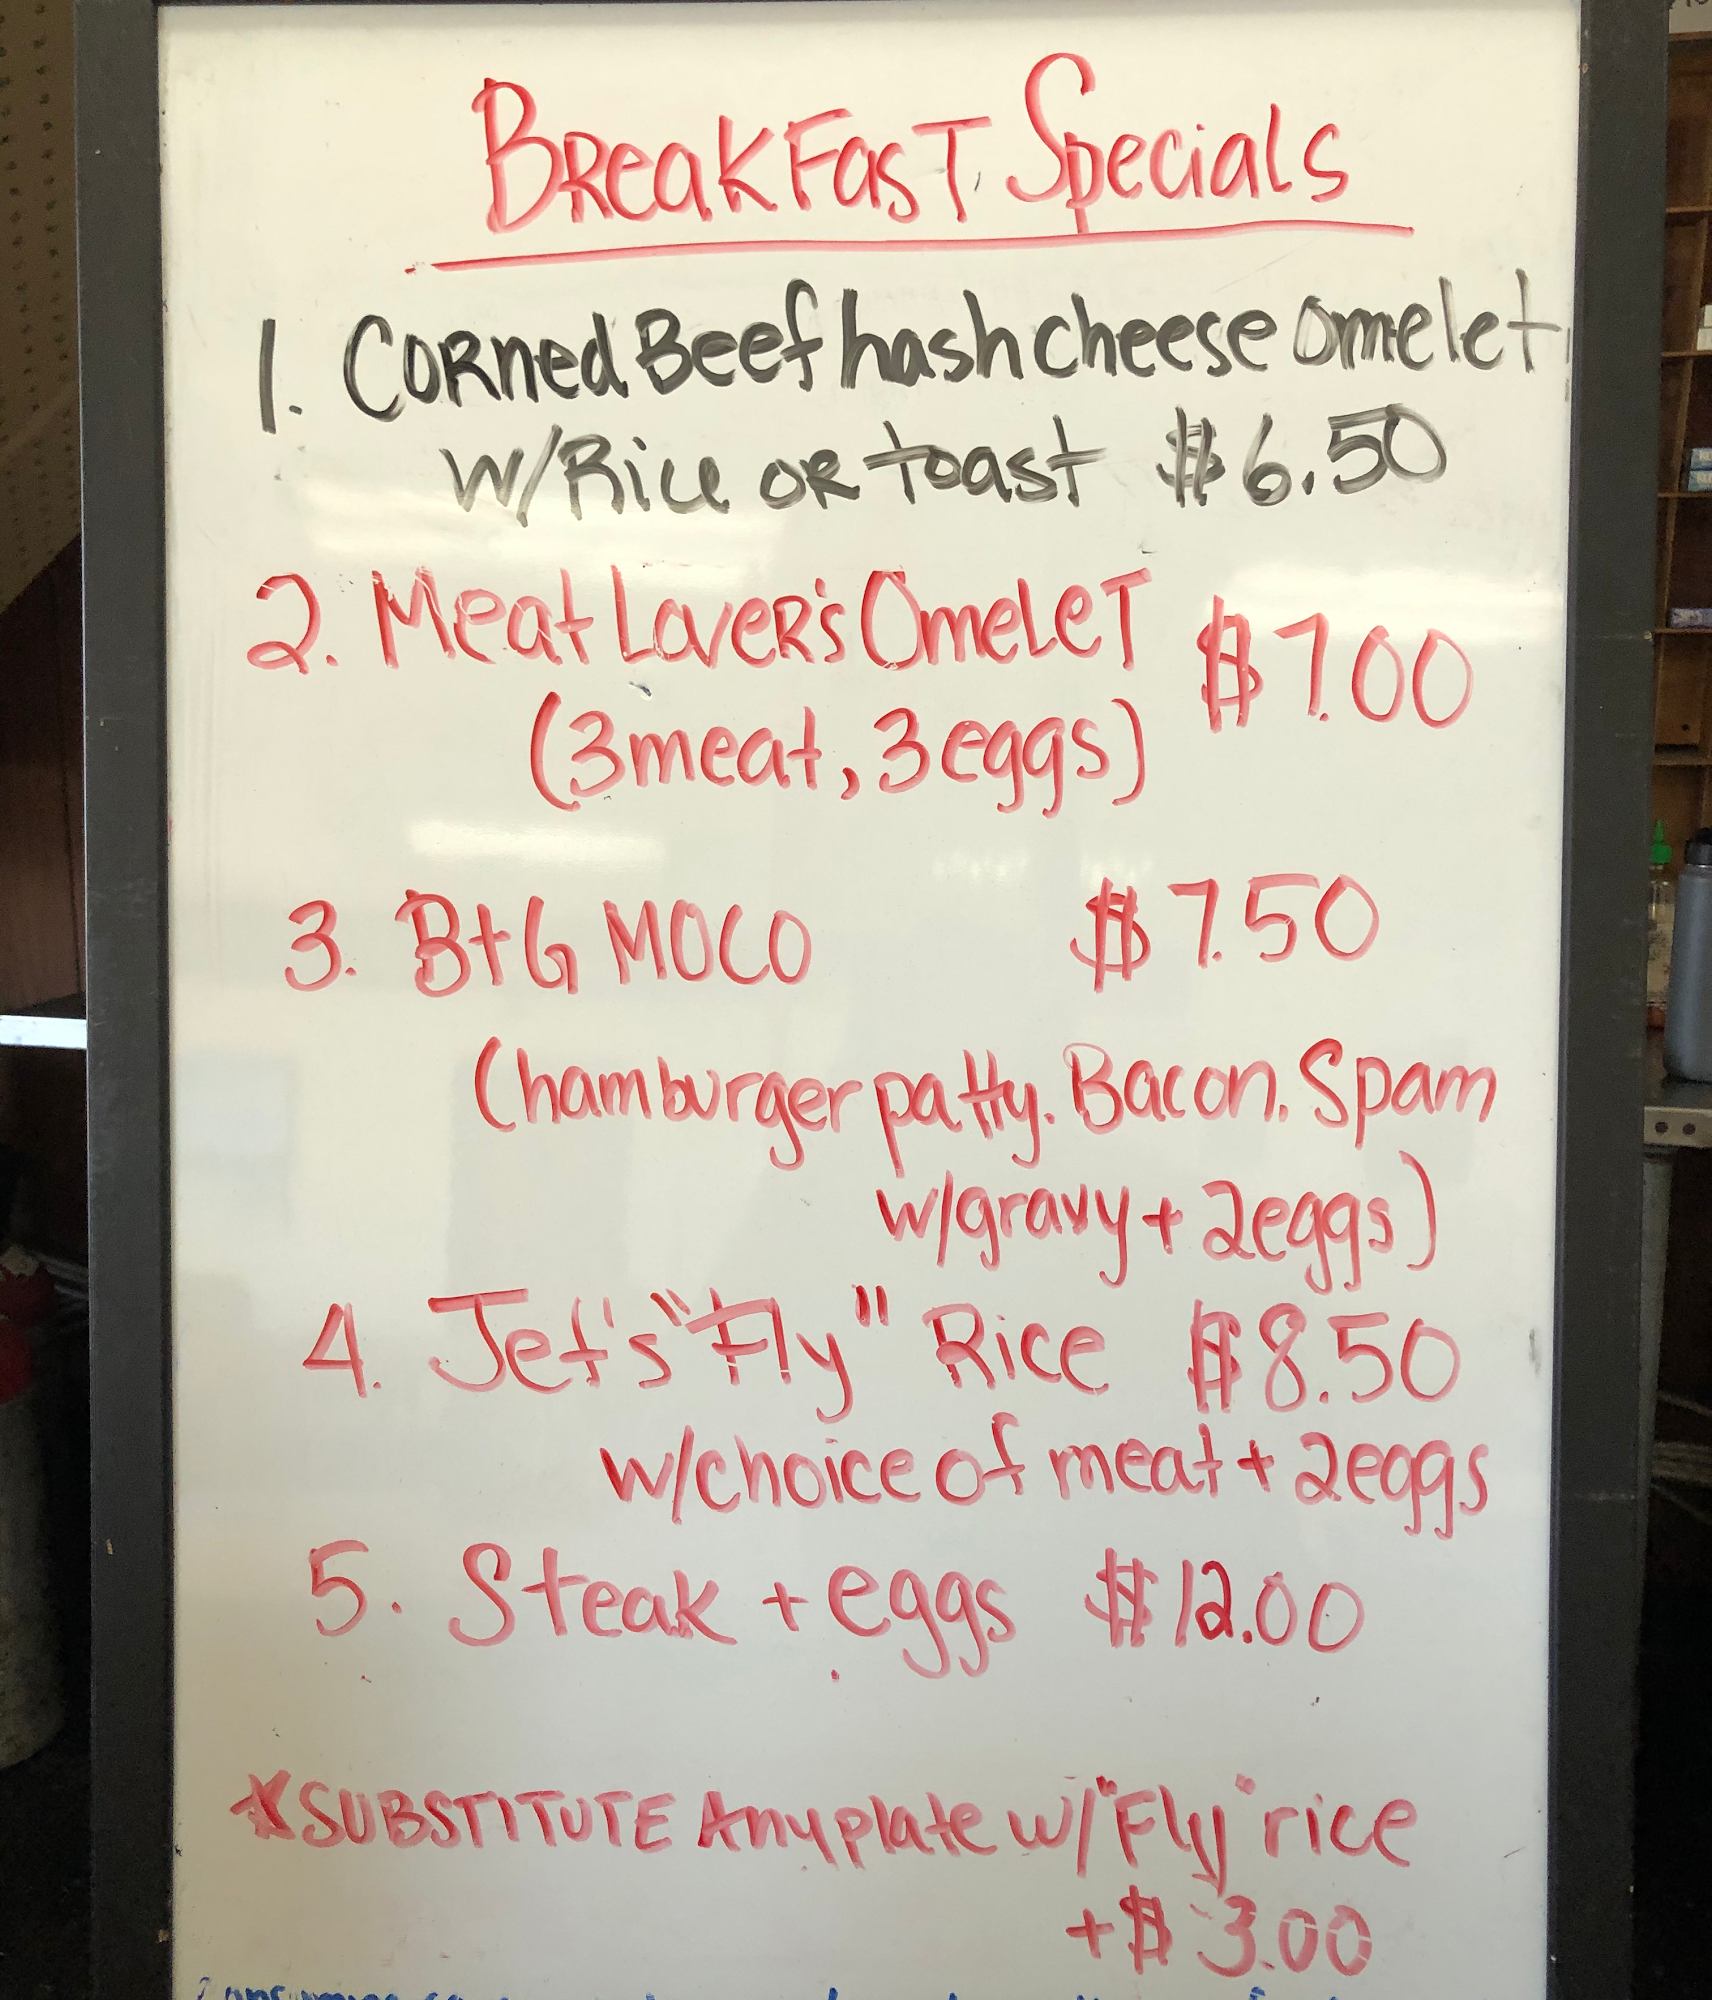 BReakFasT Specials
1. CORned Beef hash cheese omelet
w/Rice oR toast $6.50
2. Meat LoveR's OmeLeT $7.00
(3 meat, 3 eggs)
3. B+G MOCO $7.50
(hamburger patty. Bacon. Spam
w/gravy + 2eggs)
4. Jet's "Fly" Rice $8.50
w/choice of meat + 2eggs
5. Steak + eggs $12.00
*SUBSTITUTE Any plate w/"Fly" rice
+$3.00